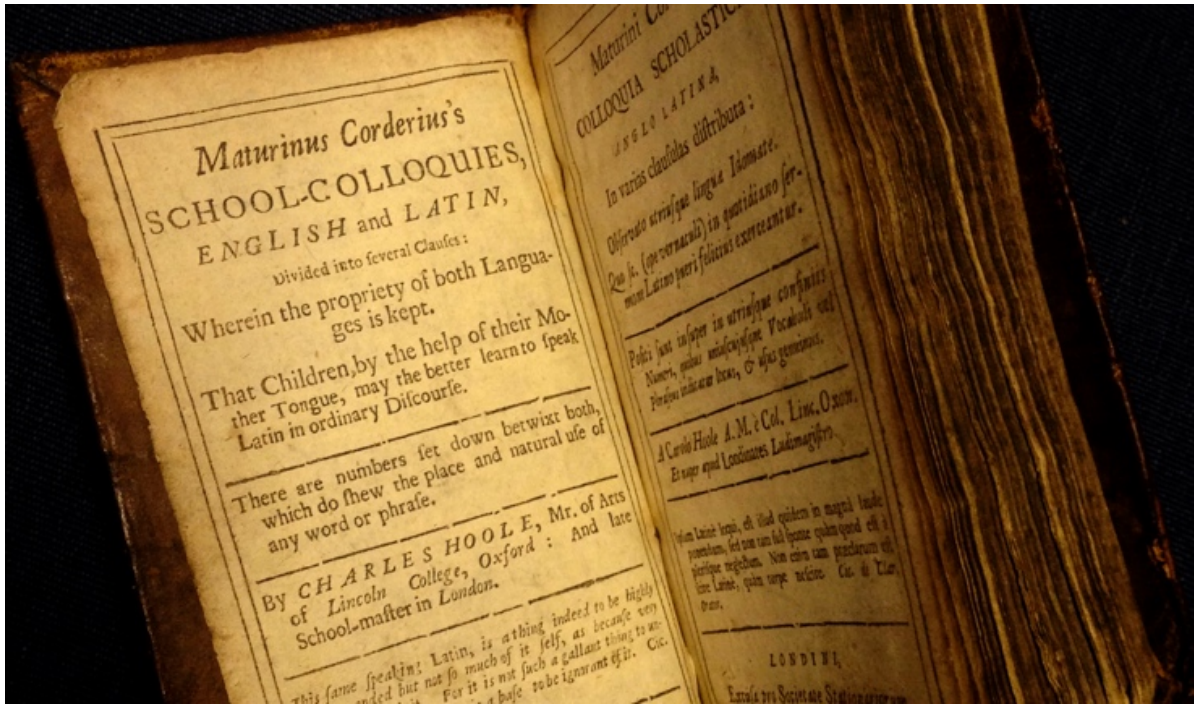 Maturinus Corderius's
SCHOOL-COLLOQUIES,
ENGLISH and LATIN,
Divided into ſeveral Clauſes:
Wherein the propriety of both Langua-
ges is kept.
That Children, by the help of their Mo-
ther Tongue, may the better learn to ſpeak
Latin in ordinary Diſcourſe.
There are numbers ſet down betwixt both,
which do ſhew the place and natural uſe of
any word or phraſe.
By CHARLES HOOLE, Mr. of Arts
of Lincoln College, Oxford: And late
School-maſter in London.
This ſame ſpeaking Latin, is a thing indeed to be highly
but not ſo much of it ſelf, as becauſe very
For it is not ſuch a gallant thing to un-
a baſe to be ignorant of it. Cic.
Maturini
COLLOQUIA SCHOLASTICA
ANGLO LATINA,
In varias clauſulas diſtributa:
Obſervato utriuſque linguæ Idiomate.
Quo ſc. (ope vernaculi) in quotidiano ſer-
mone Latino pueri felicius exerceantur.
Poſiti ſunt inſuper in utriuſque confiniis
Numeri, quibus uniuſcujuſque Vocabuli vel
Phraſeos indicatur locus, & uſus genuinus.
A Carolo Hoole A.M. è Col. Linc. Oxon.
Et nuper apud Londinates Ludimagiſtro.
Latinè loqui, eſt illud quidem in magnâ laude
ponendum, ſed non tam ſuâ ſponte quàm quod eſt à
pleriſque neglectum. Non enim tam præclarum eſt
ſcire Latinè, quàm turpe neſcire. Cic. de
Orat.
LONDINI,
Excuſa pro Societate Stationariorum